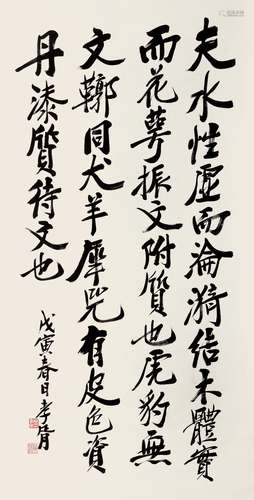 夫水性虛而淪漪结木體實
而花萼振文附質也虎豹無
文鞹同犬羊犀兕有皮色資
丹漆質待文也
戊寅春日孝胥